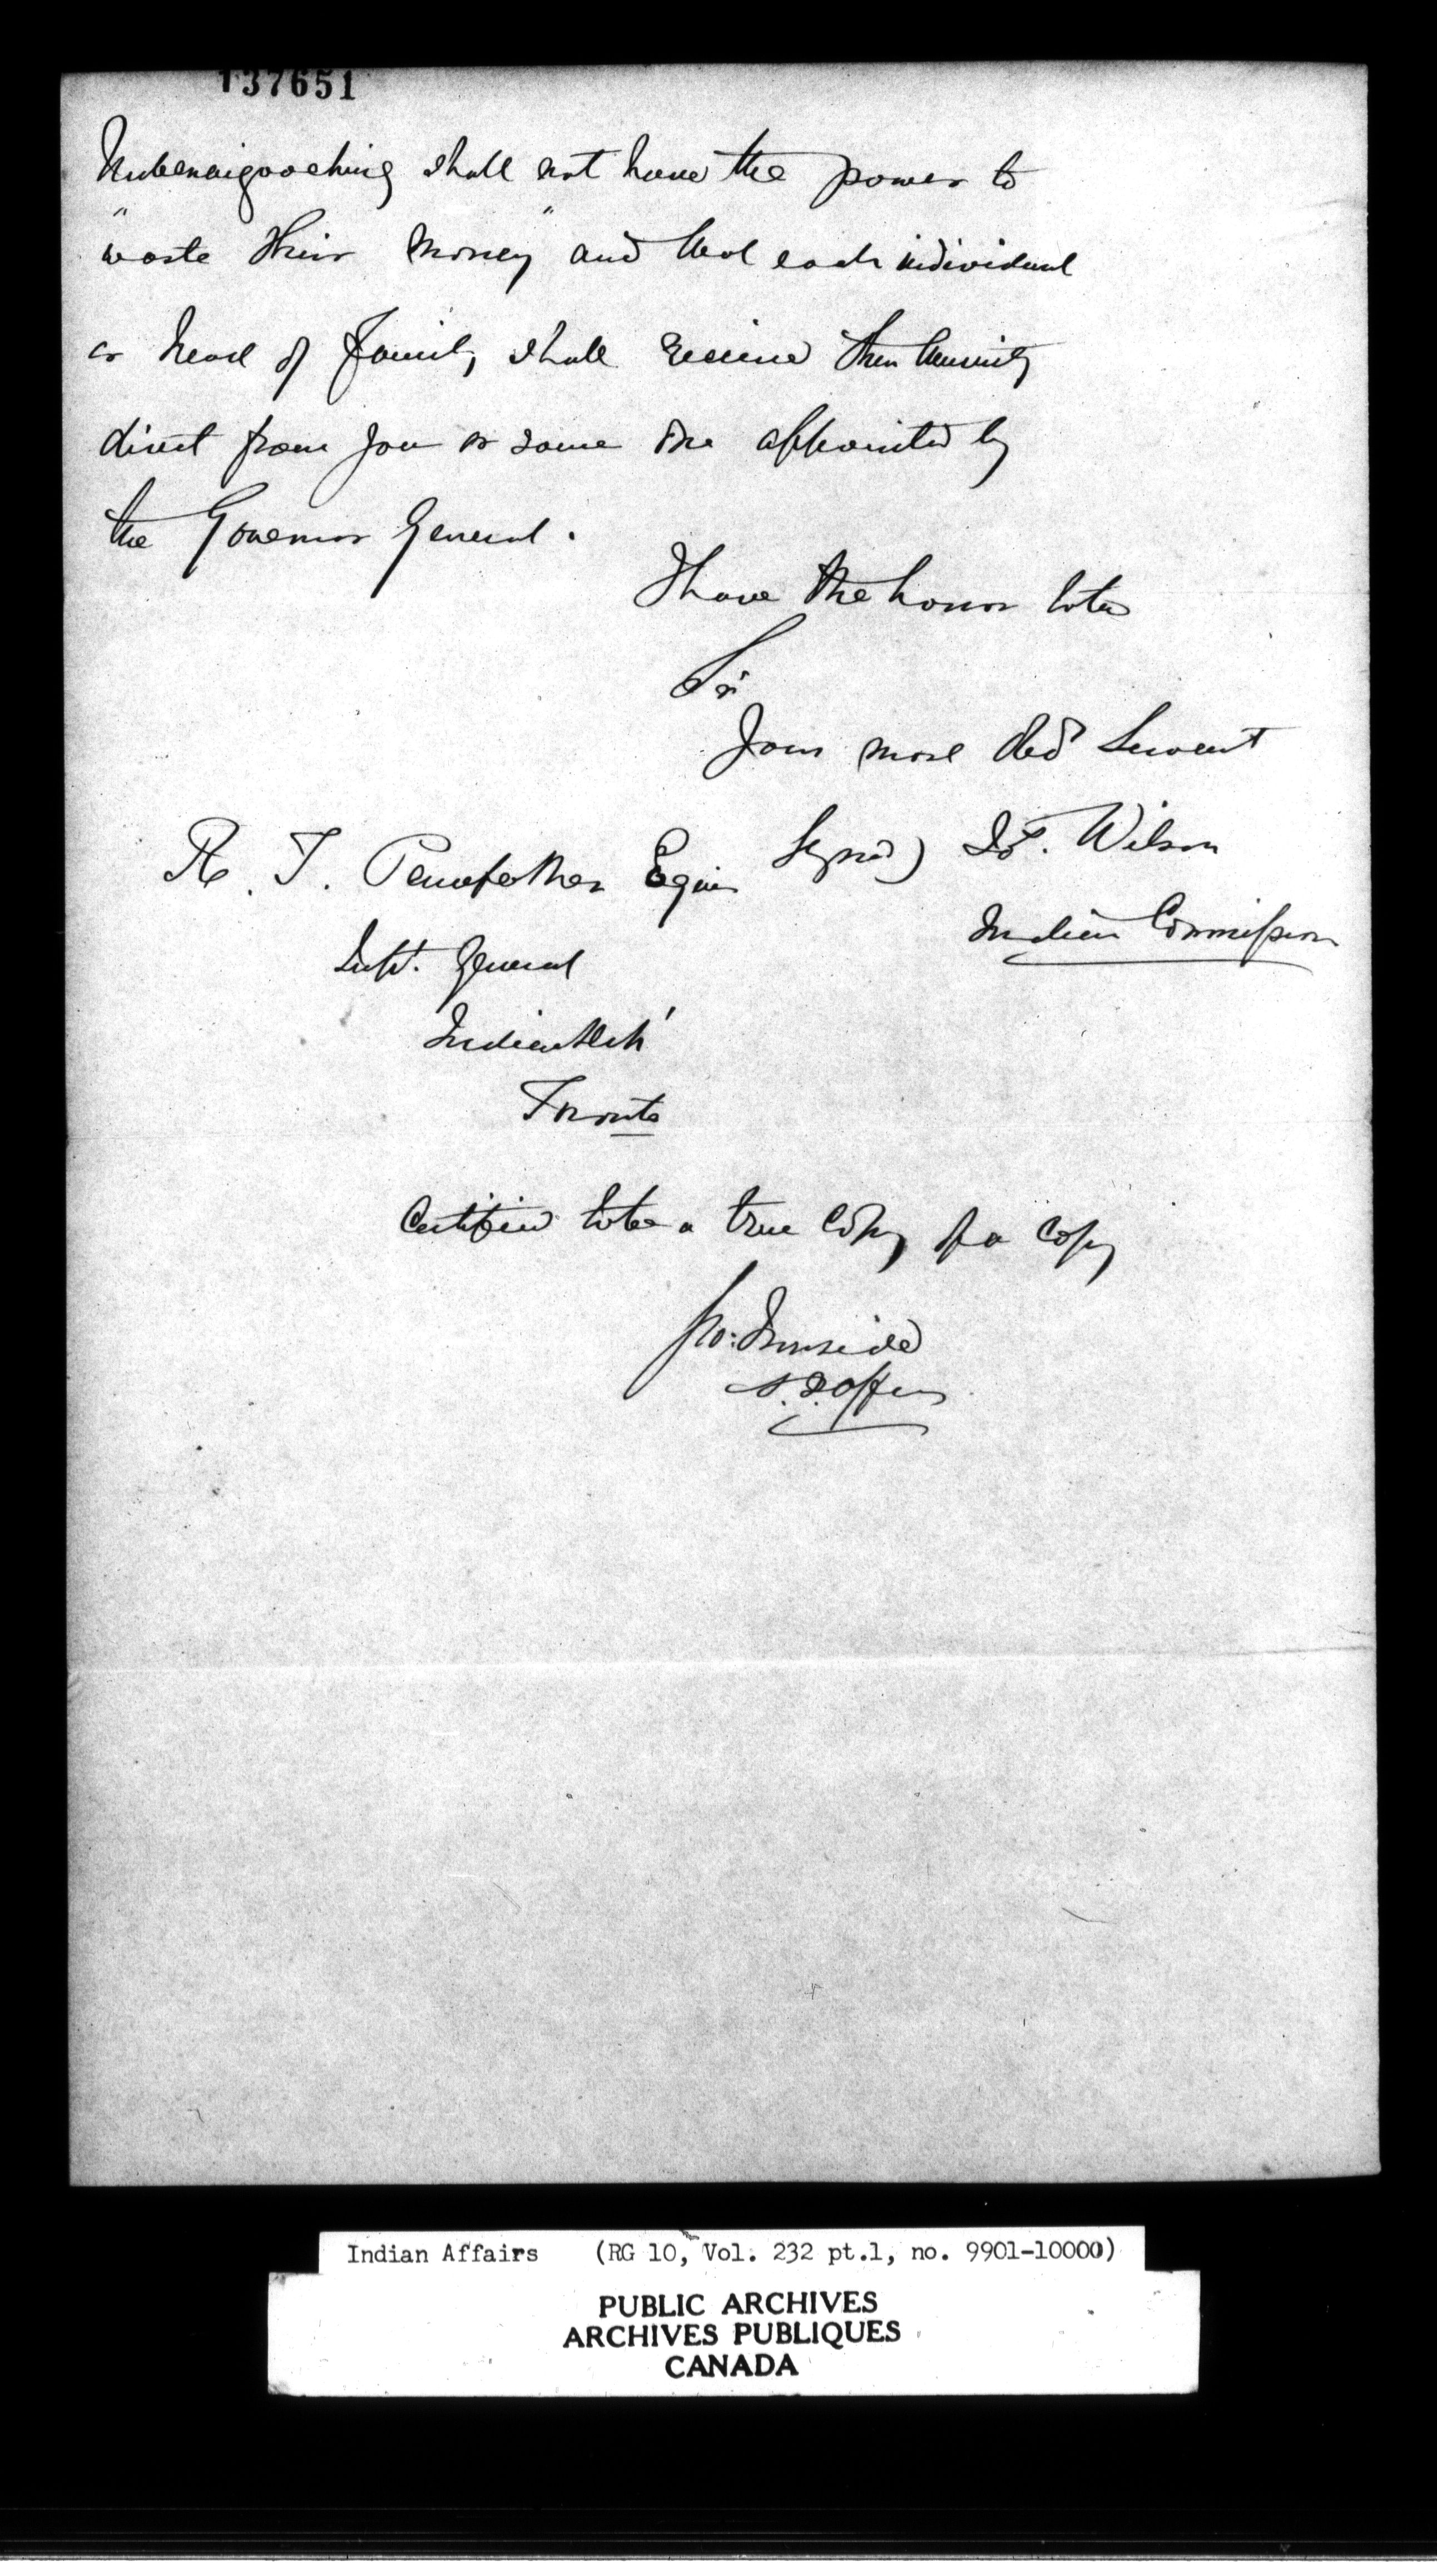 137651
Nubenaigooching shall not have the power to
"waste their money" and that each individual
or head of Family shall receive their Annuity
direct from you or some one appointed by
the Governor General.
I have the honor to be
Sir
Your most obed Servant
Signed) Wilson
R. T. Pennefather Esquire
Indian Commissioner
Supt. General
Indian
Toronto
Certified to be a true Copy of a Copy
Ironside
Indian Affairs (RG 10, Vol. 232 pt.1, no. 9901-10000)
PUBLIC ARCHIVES
ARCHIVES PUBLIQUES
CANADA